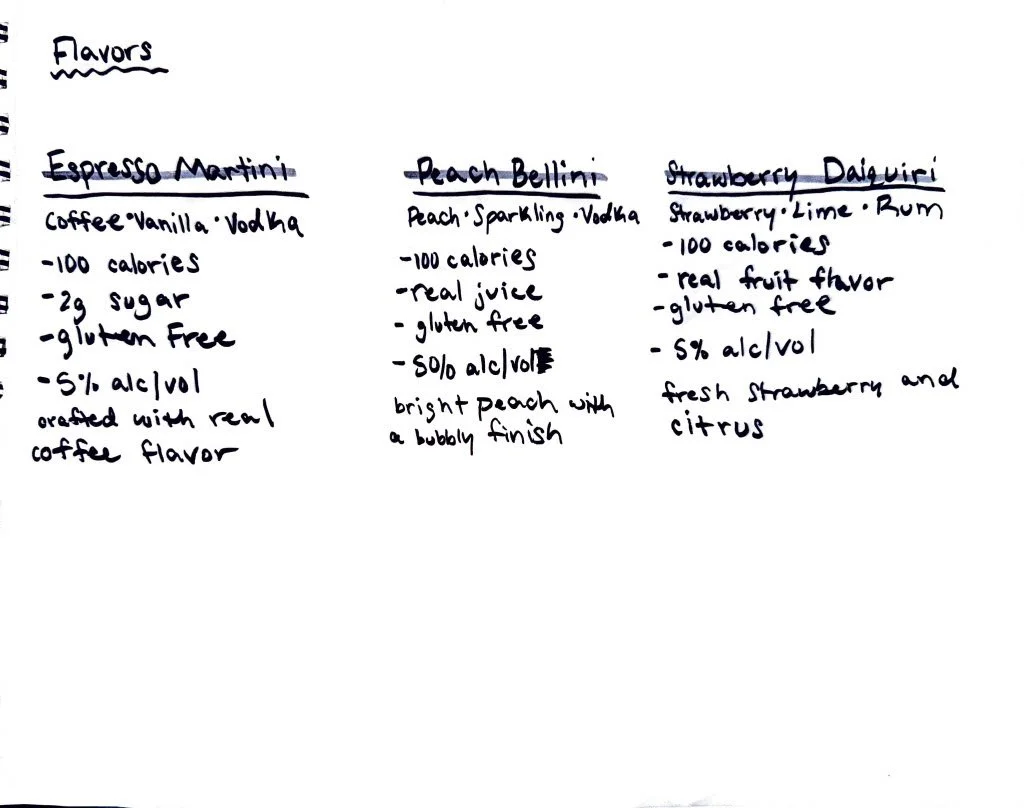 Flavors
Espresso Martini
Coffee • Vanilla • Vodka
-100 calories
-2g sugar
-gluten Free
-5% alc/vol
crafted with real
coffee flavor
Peach Bellini
Peach • Sparkling • Vodka
-100 calories
-real juice
- gluten free
-50% alc/vol
bright peach with
a bubbly finish
Strawberry Daiquiri
Strawberry • Lime • Rum
-100 calories
- real fruit flavor
-gluten free
- 5% alc/vol
fresh strawberry and
citrus